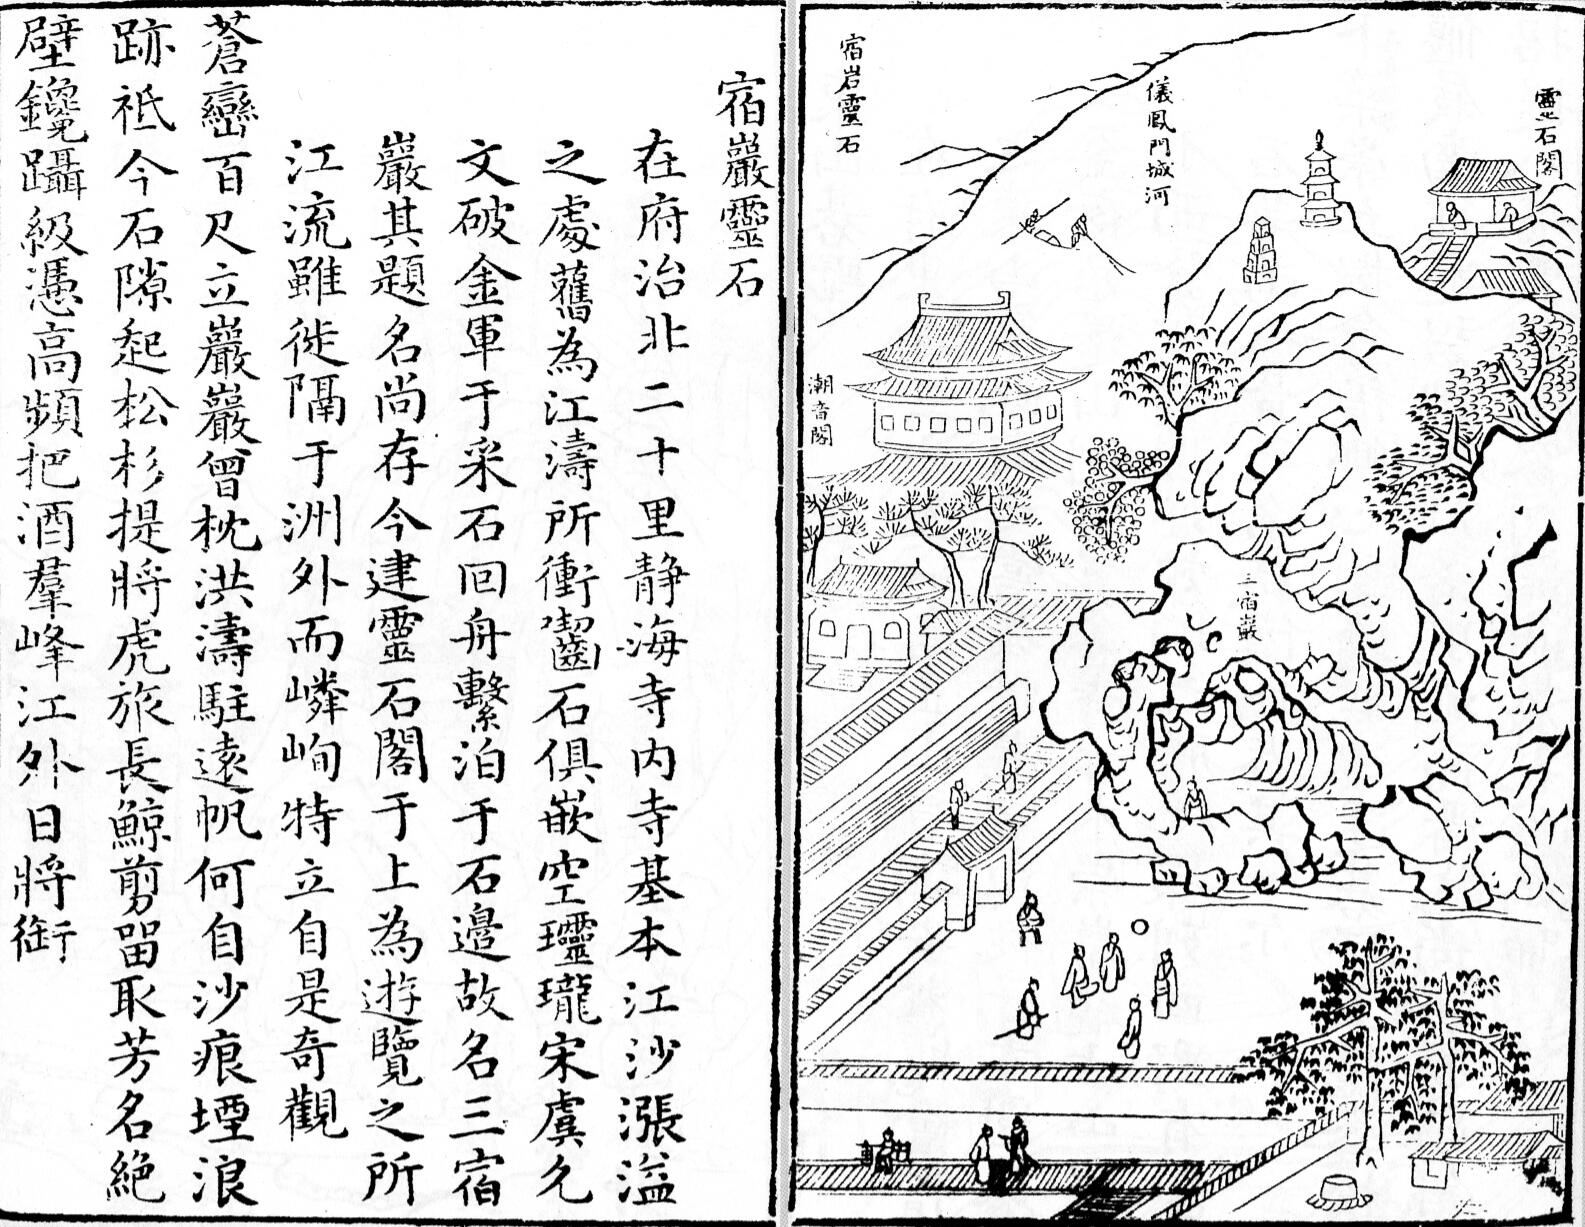 靈石閣
儀鳳門城河
宿岩靈石
三宿巖
潮音閣
宿巖靈石
在府治北二十里静海寺内寺基本江沙漲溢
之處舊為江濤所衝囓石俱嵌空瓏宋虞允
文破金軍于采石回舟繫泊于石邉故名三宿
巖其題名尚存今建靈石閣于上為遊覽之所
江流雖徙隔于洲外而嶙峋特立自是竒觀
蒼巒百尺立巖巖曾枕洪濤駐遠帆何自沙痕堙浪
跡祗今石隙起松杉提將虎旅長鯨剪畱取芳名絶
壁鑱躡級憑高頻把酒羣峰江外日將銜